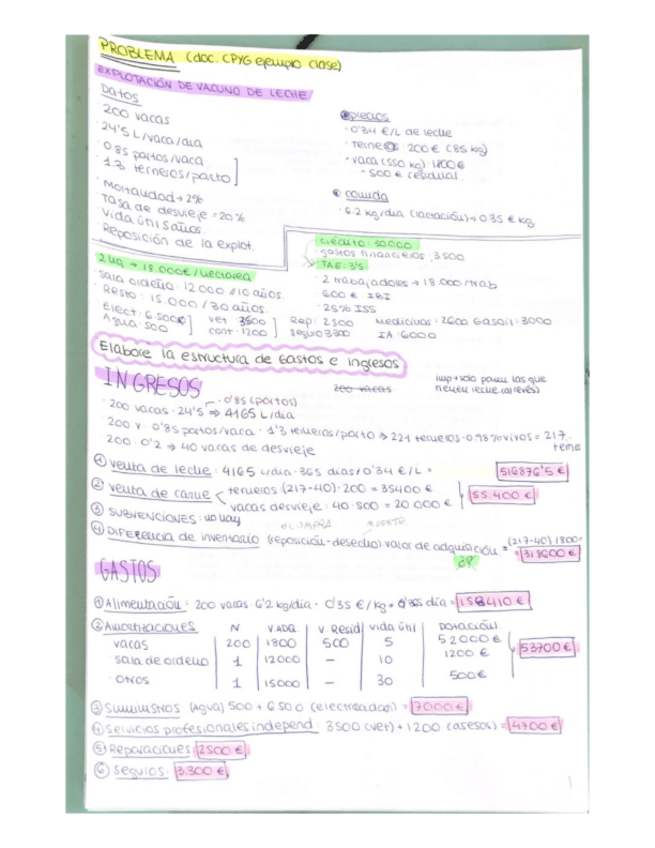 PROBLEMA (doc. CPYG ejemplo clase)
EXPLOTACIÓN DE VACUNO DE LECHE
Datos
· 200 vacas
· 24'5 L/vaca/dia
· 0'85 partos/vaca
· 1'3 terneros/parto
· Mortalidad → 2%
· Tasa de desvieje = 20%
· Vida útil 5 años.
· Reposición de la explot.
precios
· 0'34 €/L de leche
· Terneros: 200 € (85 kg)
· vaca (550 kg): 1800 €
- 500 € residual.
comida
· 6.2 kg/dia (lactación) → 0.35 €/kg
2 Ha → 18.000€/hectarea
· Sala ordeño: 12.000 € // 10 años.
· Resto: 15.000 / 30 años.
Elect: 6.500€
Agua: 500
vet: 3500
cont: 1200
Rep: 2500
seguro 3300
Medicinas: 2600 Gasoil: 3000
IA: 6000
· Crédito: 50.000
· gastos financieros, 3.500
TAE: 3'5
· 2 trabajadores → 18.000/trab
· 600 € IBI
· 25% ISS
Elabore la estructura de Gastos e ingresos
INGRESOS
· 0'85 (partos)
200 vacas
· 200 vacas · 24'5 ⇒ 4165 L/dia
· 200 v · 0'85 partos/vaca · 1'3 terneros/parto ⇒ 221 terneros · 0'98 %vivos = 217
· 200 · 0'2 ⇒ 40 vacas de desvieje
① Venta de leche: 4165 L/dia · 365 dias · 0'34 €/L = 516876'5 €
② Venta de carne
terneros (217-40) · 200 = 35400 €
vacas desvieje: 40 · 500 = 20 000 €
55.400 €
③ SUBVENCIONES: no hay
④ Diferencia de inventario (reposición - desecho) · valor de adquisición = (217-40) 1800 = 318600 €
GASTOS
① Alimentación: 200 vacas · 6'2 kg/dia · 0'35 €/kg · 365 dia = 158410 €
② Amortizaciones N V.ADQ. V. Resid vida útil Dotación
vacas 200 1800 500 5 52000 €
· sala de ordeño 1 12000 – 10 1200 €
· Otros 1 15000 – 30 500€
53700 €
③ Suministros (Agua) 500 + 6500 (electricidad) = 7000 €
④ Servicios profesionales independ: 3500 (vet) + 1200 (asesor) = 4700 €
⑤ Reparaciones: 2500 €
⑥ Seguros: 3.300 €
1